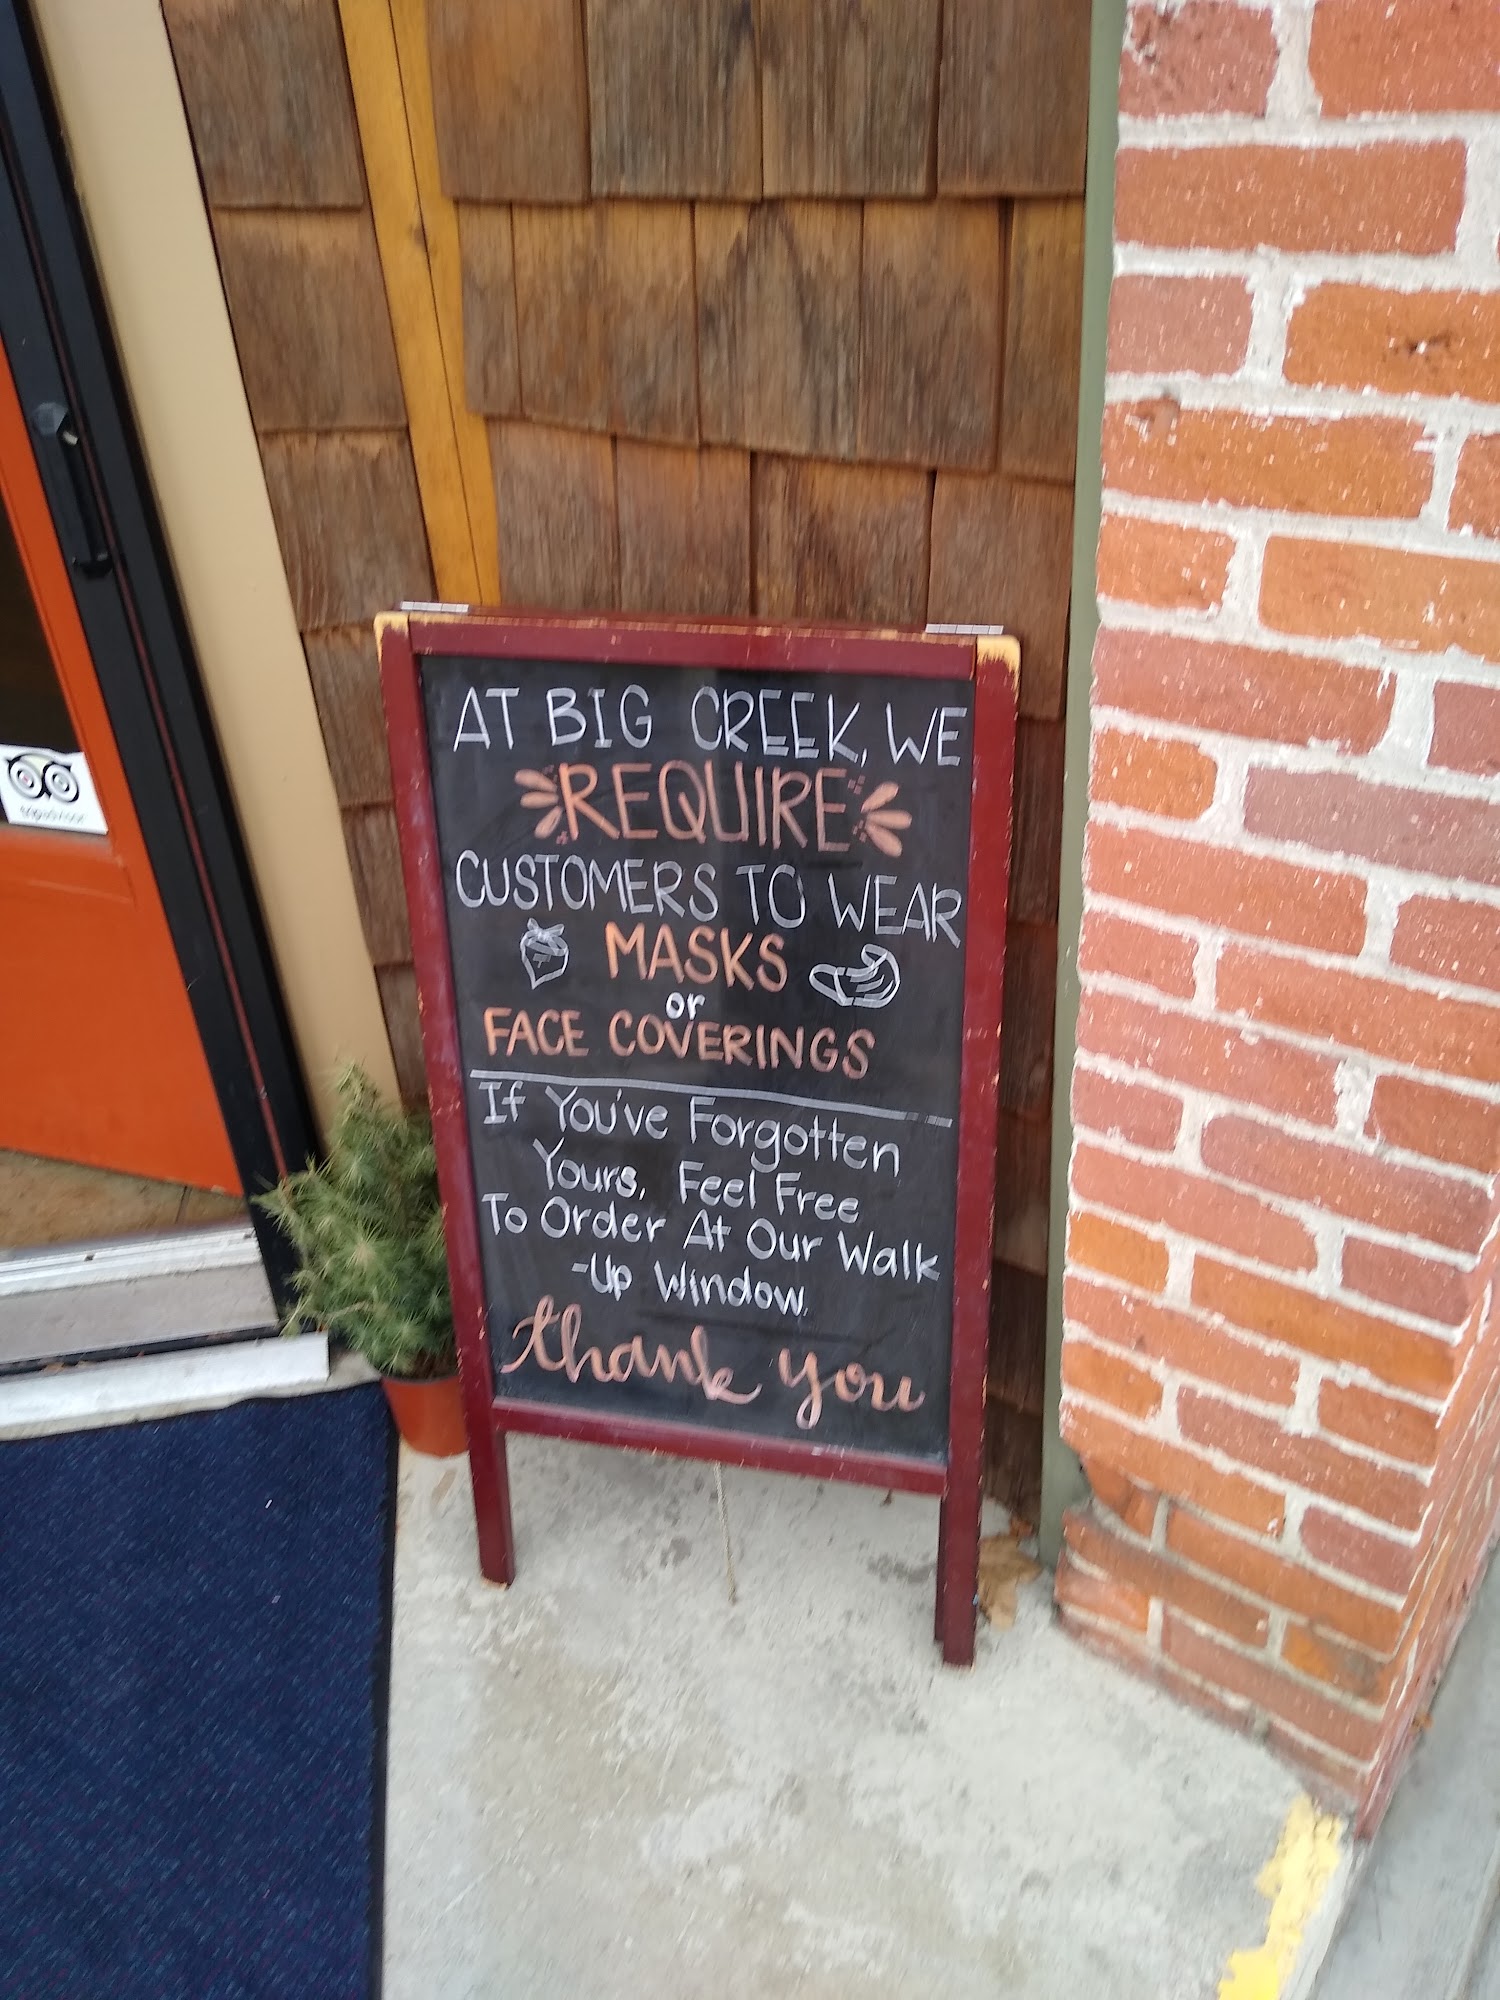 AT BIG CREEK, WE
REQUIRE
CUSTOMERS TO WEAR
MASKS
or
FACE COVERINGS
If You've Forgotten
Yours, Feel Free
To Order At Our Walk
-Up Window.
thank you
tripadvisor